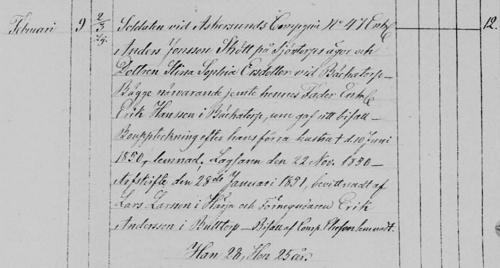 Februari 9 2/3 Lj. Soldaten vid Askersunds Compagnie No 47 Enkl. 12.
Anders Jonsson Skött på Sjötorps ägor och
Dottren Stina Sophia Ersdotter vid Båckatorp
Bägge närvarande jemte hennes Fader Enkl.
Erik Hansson i Båckatorp, som gaf sitt bifall
Bouppteckning efter hans förra hustru † d. 10 Juni
1850, lemnad, Lagfaren den 22 Nov. 1850
Afskrifte den 28de Januari 1851, bevittnadt af
Lars Larsson i och Erik
Andersson i Bifall af Comp. Chefen lemnadt.
Han 28, Hon 25 år.